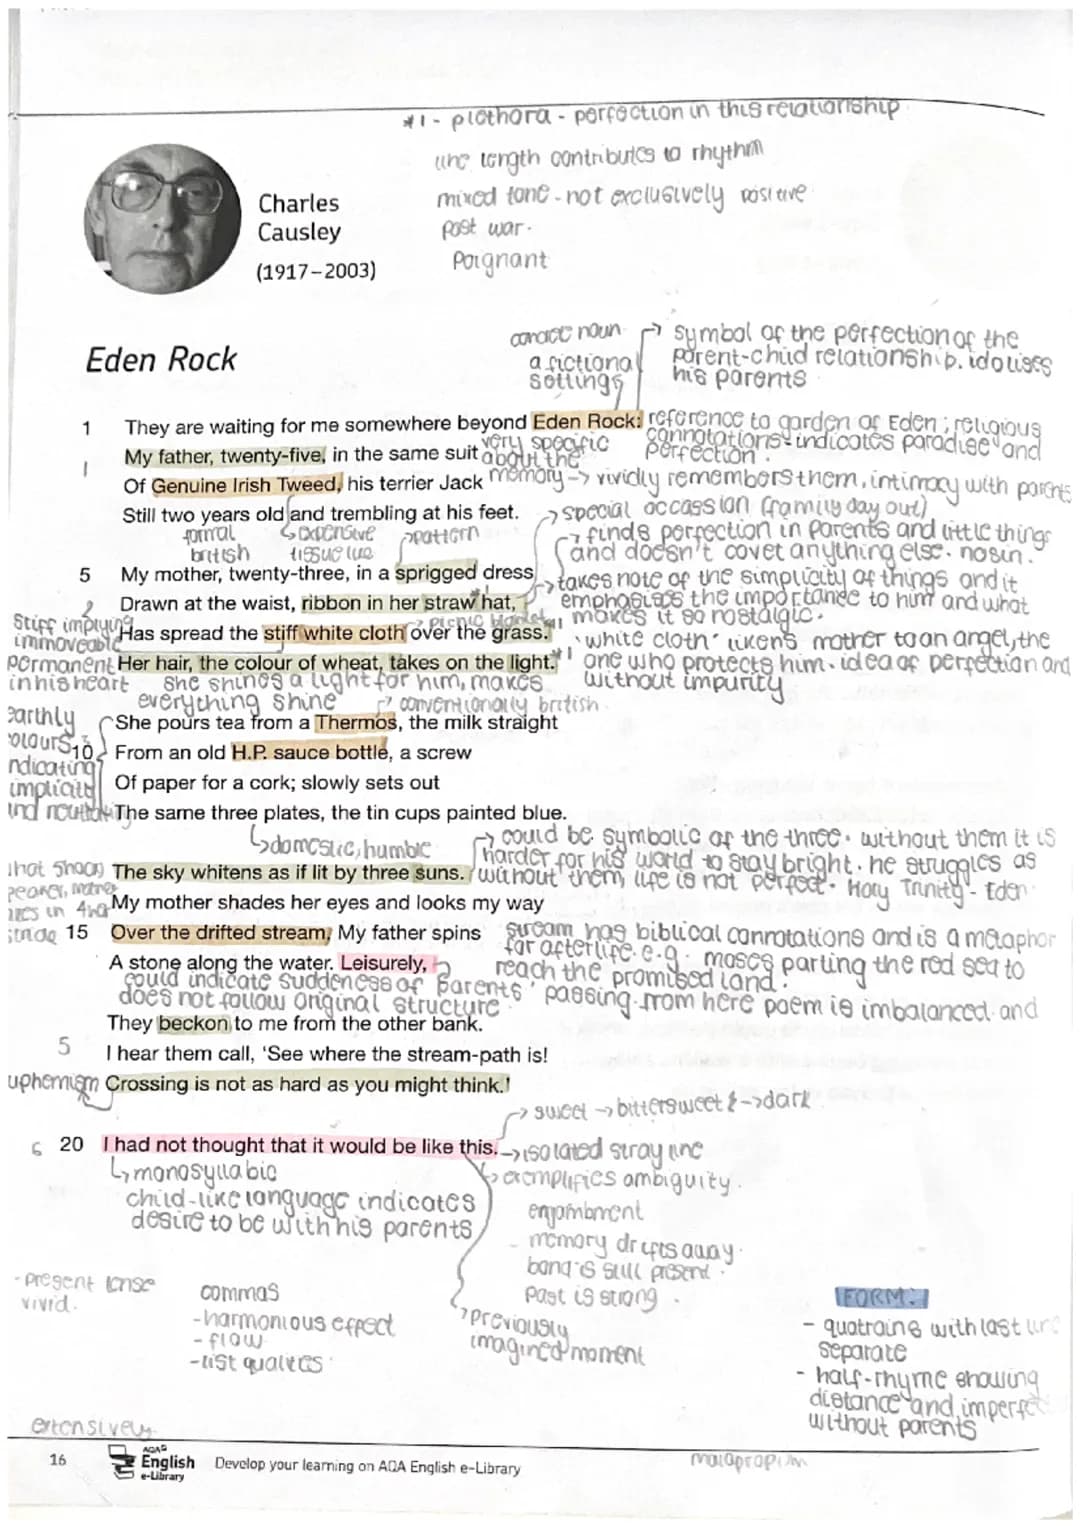 *1 - plethora - perfection in this relationship
line length contributes to rhythm
mixed tone - not exclusively positive
post war.
Poignant
Charles
Causley
(1917–2003)
Eden Rock
a fictional
settings
symbol of the perfection of the
parent-child relationship. idolises
his parents
1 They are waiting for me somewhere beyond Eden Rock:
reference to garden of Eden; religious
connotations - indicates paradise and
perfection.
1 My father, twenty-five, in the same suit
very specific
about the
memory -> vividly remembers them, intimacy with parents
Of Genuine Irish Tweed, his terrier Jack
Still two years old and trembling at his feet.
special occassion (family day out)
formal
british
expensive
pattern
finds perfection in parents and little things
and doesn't covet anything else. no sin.
5 My mother, twenty-three, in a sprigged dress
takes note of the simplicity of things and it
emphasises the importance to him and what
makes it so nostalgic.
2 Drawn at the waist, ribbon in her straw hat,
stiff implying
immoveable
permanent
in his heart
picnic blanket
Has spread the stiff white cloth over the grass.
'white cloth' likens mother to an angel, the
one who protects him. idea of perfection and
without impurity
Her hair, the colour of wheat, takes on the light. *1
she shines a light for him, makes
everything shine
conventionally british.
earthly
colours
ndicating
implicity
She pours tea from a Thermos, the milk straight
10 From an old H.P. sauce bottle, a screw
Of paper for a cork; slowly sets out
The same three plates, the tin cups painted blue.
domestic, humble
could be symbolic of the three. without them it is
harder for his world to stay bright. he struggles as
without them, life is not perfect. Holy Trinity - Eden
The sky whitens as if lit by three suns.
My mother shades her eyes and looks my way
15 Over the drifted stream. My father spins
stream has biblical connotations and is a metaphor
for afterlife. e.g. moses parting the red sea to
reach the promised land.
A stone along the water. Leisurely,
could indicate suddenness of parents' passing. from here poem is imbalanced. and
does not follow original structure.
They beckon to me from the other bank.
5 I hear them call, 'See where the stream-path is!
uphemism Crossing is not as hard as you might think.'
sweet -> bittersweet -> dark
6 20 I had not thought that it would be like this.
-> isolated stray line
exemplifies ambiguity.
monosyllabic
child-like language indicates
desire to be with his parents
enjambment
- memory drifts away.
bond is still present.
past is strong.
previously
imagined moment
- present tense
vivid.
commas
-harmonious effect
-flow
-list qualities
FORM:
- quatrains with last line
separate
- half-rhyme showing
distance and imperfec
without parents
extensively
16
AQA
English
e-Library
Develop your learning on AQA English e-Library